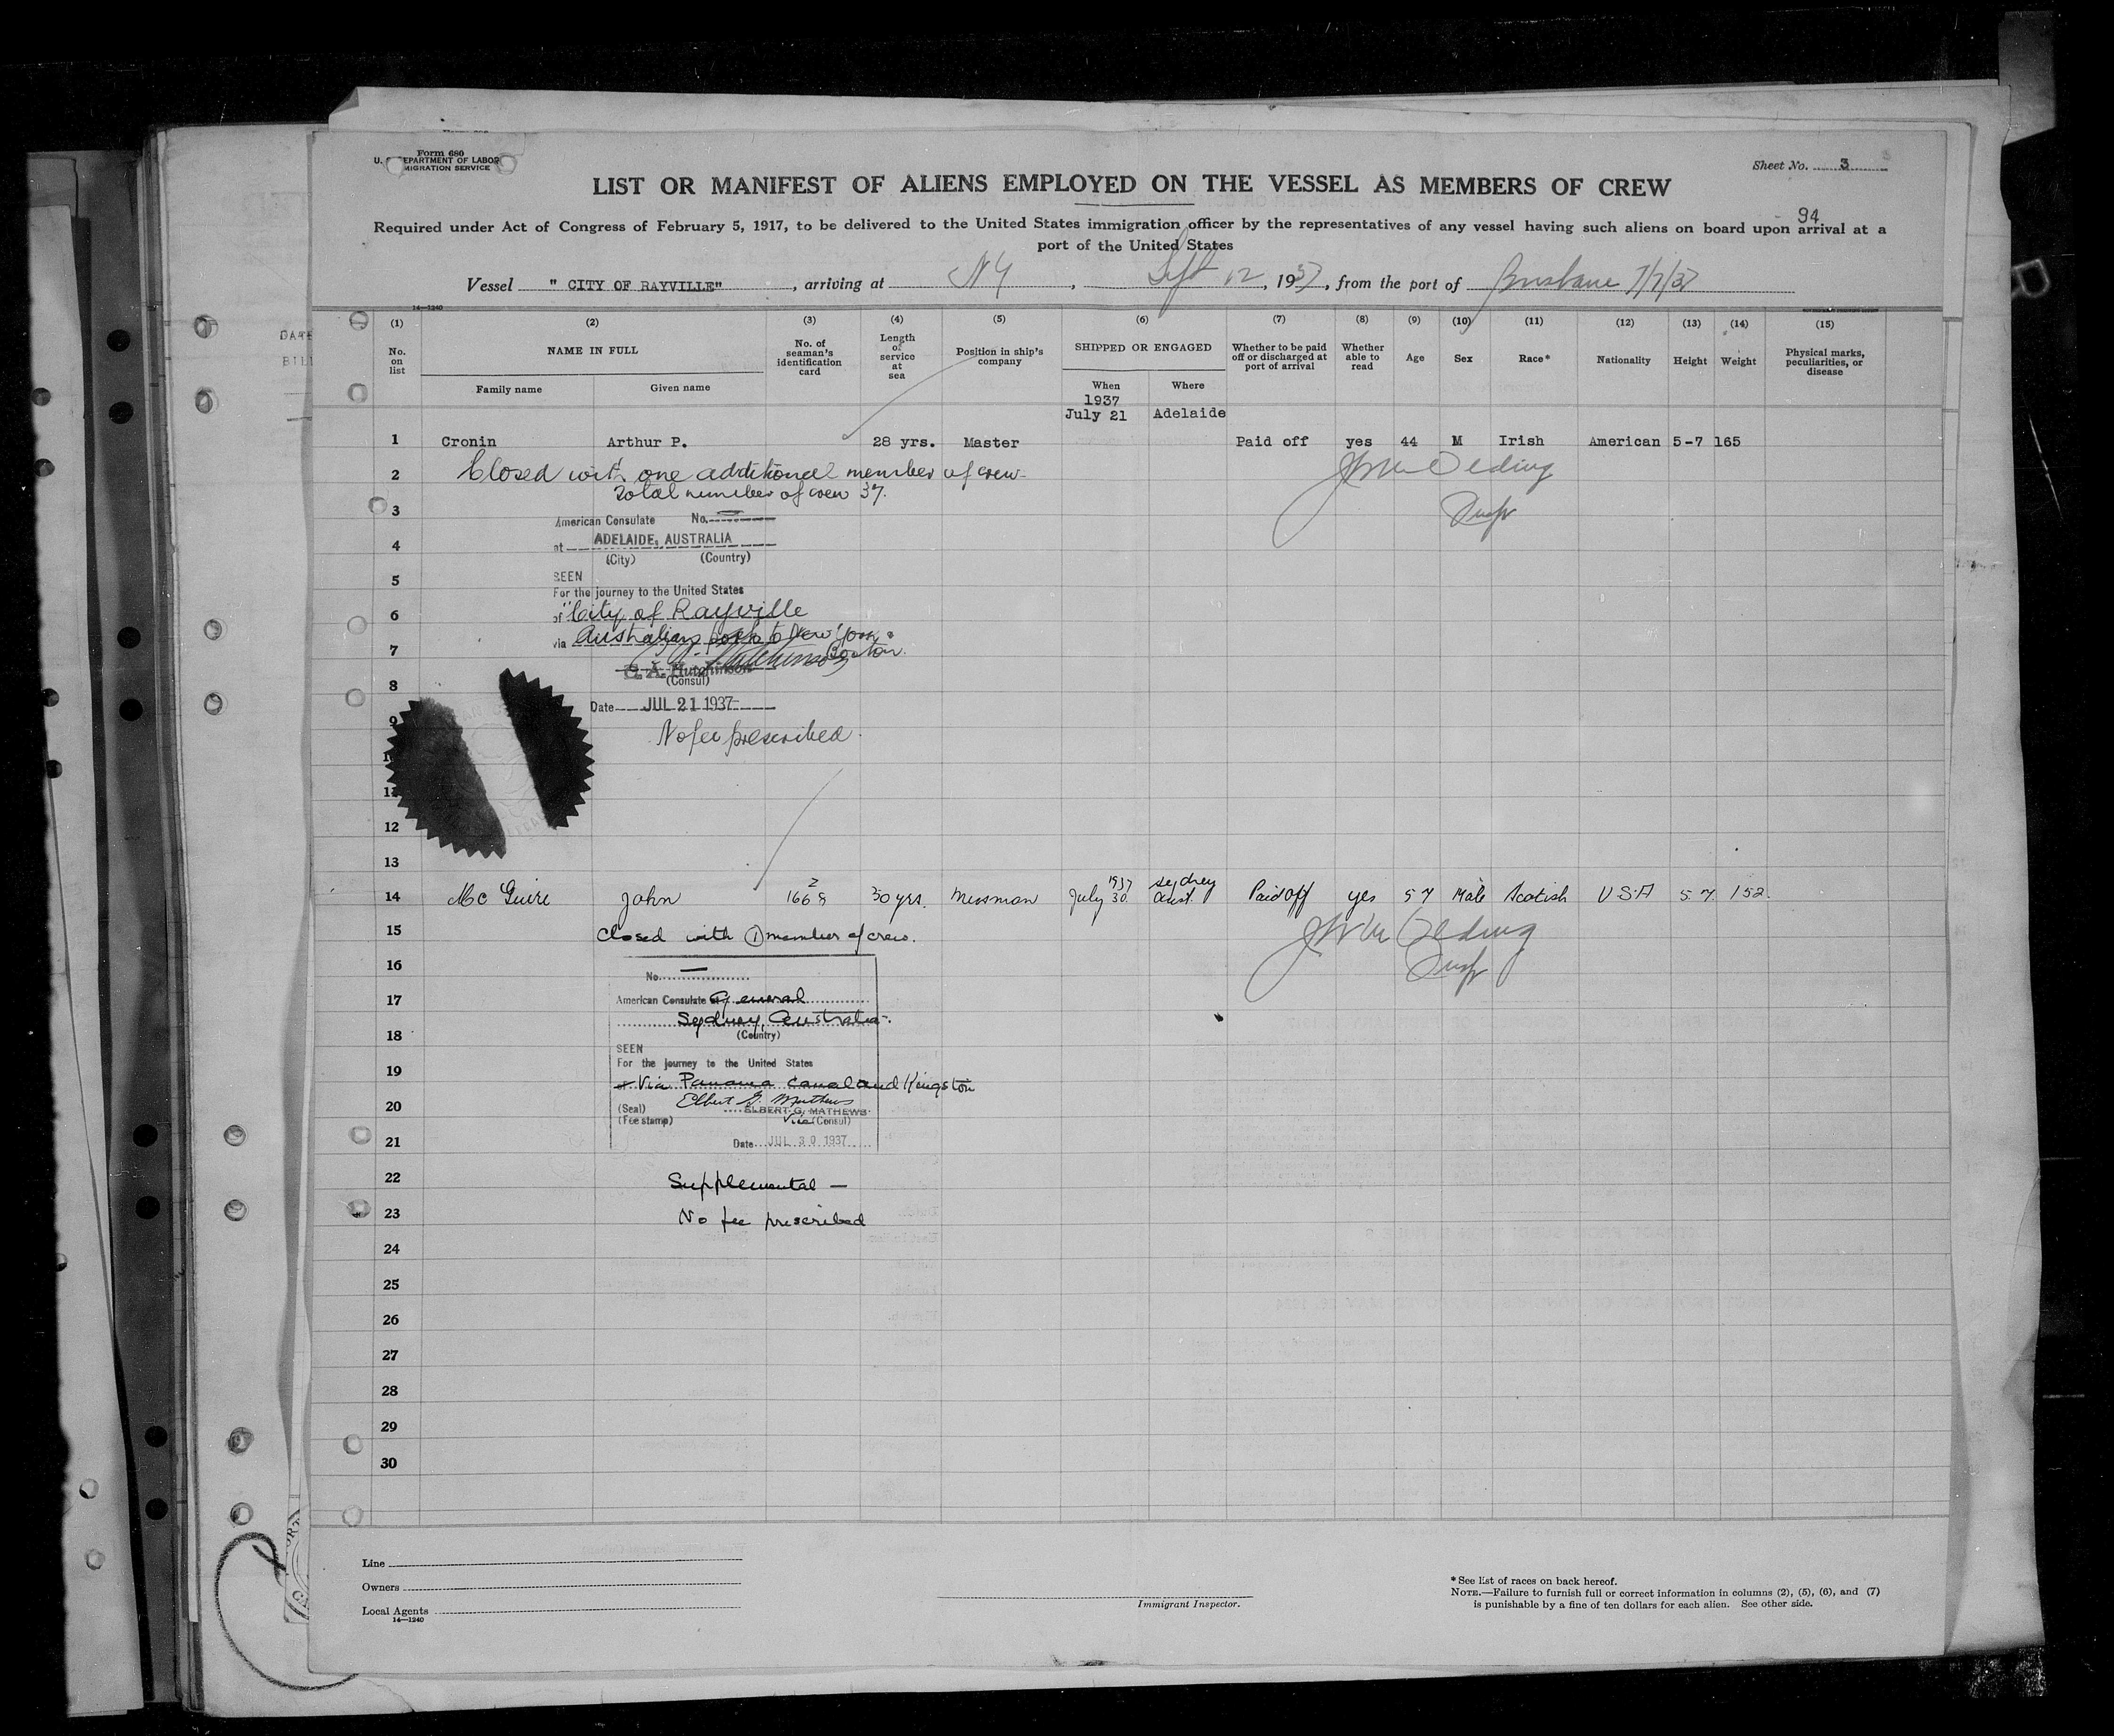 Form 680
U. S. DEPARTMENT OF LABOR
IMMIGRATION SERVICE
Sheet No. 3
LIST OR MANIFEST OF ALIENS EMPLOYED ON THE VESSEL AS MEMBERS OF CREW
94
Required under Act of Congress of February 5, 1917, to be delivered to the United States immigration officer by the representatives of any vessel having such aliens on board upon arrival at a
port of the United States
Vessel " CITY OF RAYVILLE" , arriving at NY , Sept 12 , 1937 , from the port of Brisbane 7/7/37
14—1240
(1) (2) (3) (4) (5) (6) (7) (8) (9) (10) (11) (12) (13) (14) (15)
No. on list NAME IN FULL No. of seaman's identification card Length of service at sea Position in ship's company SHIPPED OR ENGAGED Whether to be paid off or discharged at port of arrival Whether able to read Age Sex Race* Nationality Height Weight Physical marks, peculiarities, or disease
Family name Given name When Where
1937
July 21 Adelaide
1 Cronin Arthur P. 28 yrs. Master Paid off yes 44 M Irish American 5-7 165
2 Closed with one additional member of crew-
Total number of crew 37.
3
American Consulate No.
4 at ADELAIDE, AUSTRALIA
(City) (Country)
5 SEEN
For the journey to the United States
6 of "City of Rayville
via Australian ports to New York &
7 Boston.
G. A. Hutchinson
8 (Consul)
Date JUL 21 1937
9 No fee prescribed.
10
11
12
13
14 Mc Guire John 1668 2 30 yrs. Messman July 30 1937 Sydney Aust. Paid off yes 57 Male Scotish U.S.A 5.7. 152.
15 Closed with 1 member of crew.
16 No.
17 American Consulate General
Sydney, Australia.
18 (Country)
SEEN
19 For the journey to the United States
Via Panama Canal and Kingston
Elbert G. Mathews
20 (Seal) ELBERT G. MATHEWS
(Fee stamp) Vice (Consul)
21 Date JUL 30 1937
22 Supplemental —
23 No fee prescribed
24
25
26
27
28
29
30
Line
Owners
Local Agents
14—1240
Immigrant Inspector.
* See list of races on back hereof.
NOTE.—Failure to furnish full or correct information in columns (2), (5), (6), and (7)
is punishable by a fine of ten dollars for each alien. See other side.